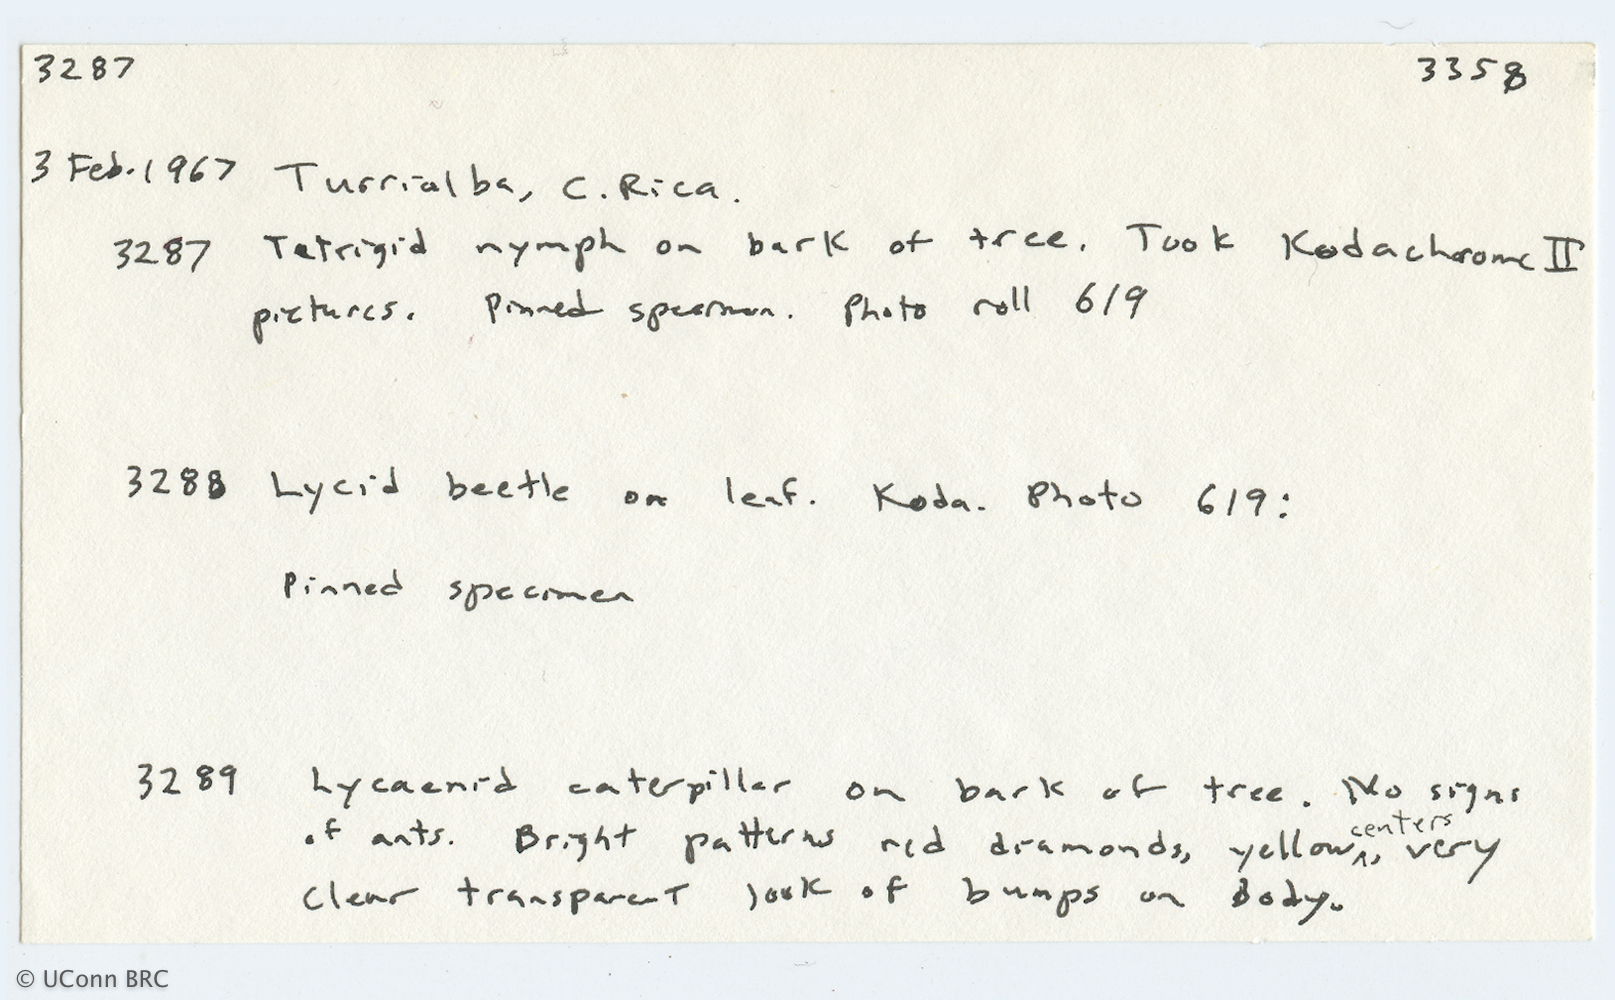 3287 3358
3 Feb. 1967 Turrialba, C. Rica.
3287 Tetrigid nymph on bark of tree. Took Kodachrome II
pictures. Pinned specimen. Photo roll 619
3288 Lycid beetle on leaf. Koda. Photo 619:
Pinned specimen
3289 Lycaenid caterpillar on bark of tree. No signs
of ants. Bright patterns red diamonds, yellow centers, very
clear transparent look of bumps on Body.
© UConn BRC